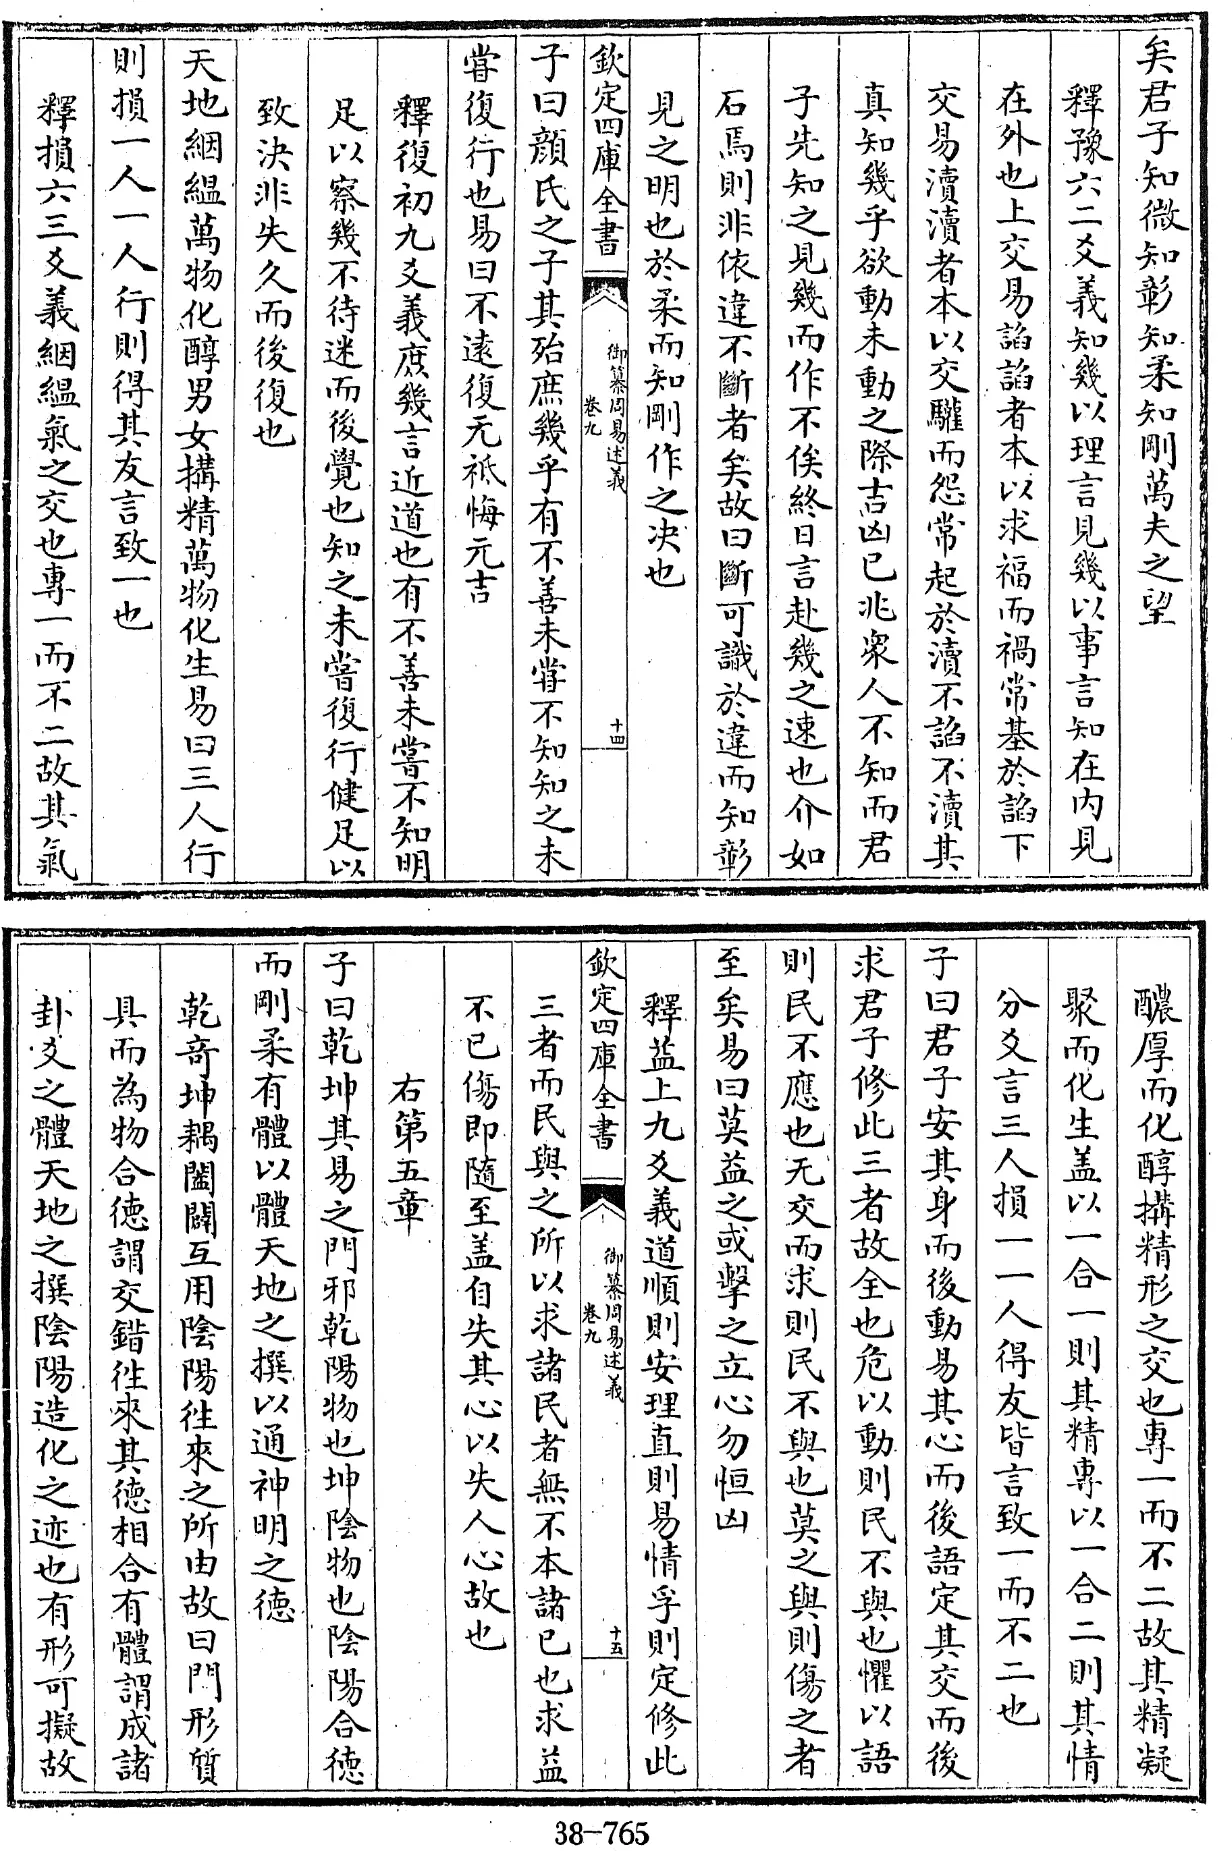 矣君子知微知彰知柔知剛萬夫之望
釋豫六二爻義知幾以理言見幾以事言知在内見
在外也上交易諂諂者本以求福而禍常基於諂下
交易瀆瀆者本以交驩而怨常起於瀆不諂不瀆其
真知幾乎欲動未動之際吉凶已兆衆人不知而君
子先知之見幾而作不俟終日言赴幾之速也介如
石焉則非依違不斷者矣故曰斷可識於違而知彰
見之明也於柔而知剛作之决也
欽定四庫全書
御纂周易述義
卷九
十四
子曰顔氏之子其殆庶幾乎有不善未嘗不知知之未
嘗復行也易曰不逺復无祗悔元吉
釋復初九爻義庶幾言近道也有不善未嘗不知明
足以察幾不待迷而後覺也知之未嘗復行健足以
致决非失久而後復也
天地絪縕萬物化醇男女搆精萬物化生易曰三人行
則損一人一人行則得其友言致一也
釋損六三爻義絪縕氣之交也專一而不二故其氣
醲厚而化醇搆精形之交也專一而不二故其精凝
聚而化生盖以一合一則其精專以一合二則其情
分爻言三人損一一人得友皆言致一而不二也
子曰君子安其身而後動易其心而後語定其交而後
求君子修此三者故全也危以動則民不與也懼以語
則民不應也无交而求則民不與也莫之與則傷之者
至矣易曰莫益之或擊之立心勿恒凶
釋益上九爻義道順則安理直則易情孚則定修此
欽定四庫全書
御纂周易述義
卷九
十五
三者而民與之所以求諸民者無不本諸已也求益
不已傷即隨至盖自失其心以失人心故也
右第五章
子曰乾坤其易之門邪乾陽物也坤陰物也陰陽合德
而剛柔有體以體天地之撰以通神明之德
乾奇坤耦闔闢互用陰陽徃來之所由故曰門形質
具而為物合德謂交錯徃來其德相合有體謂成諸
卦爻之體天地之撰陰陽造化之迹也有形可擬故
38-765